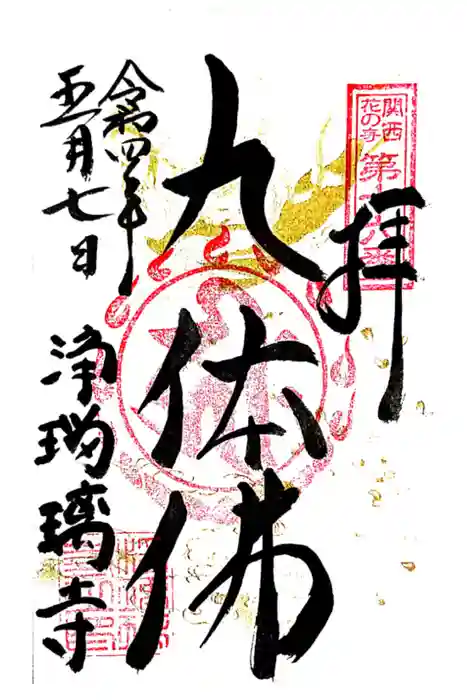 関西
花の寺
第十六番
拝
九体佛
令和四年
五月七日
浄瑠璃寺